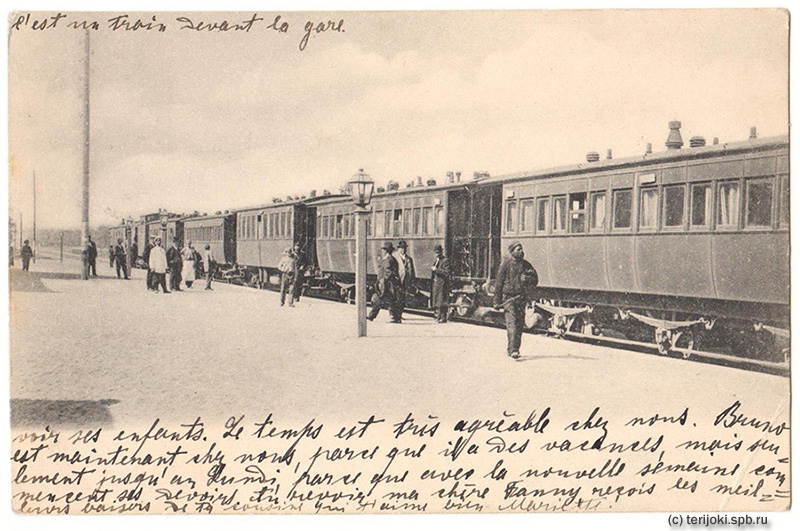 c'est un train devant la gare.
voir ses enfants. Le temps est très agréable chez nous. Bruno
est maintenant chez nous, parce que il a des vacances, mais seu-
lement jusqu'au lundi, parce que avec la nouvelle semaine com-
mencent ses devoirs. Au revoir, ma chère Fanny reçois les meil-
leurs baisers de ta cousine qui t'aime bien Mariette.
(c) terijoki.spb.ru